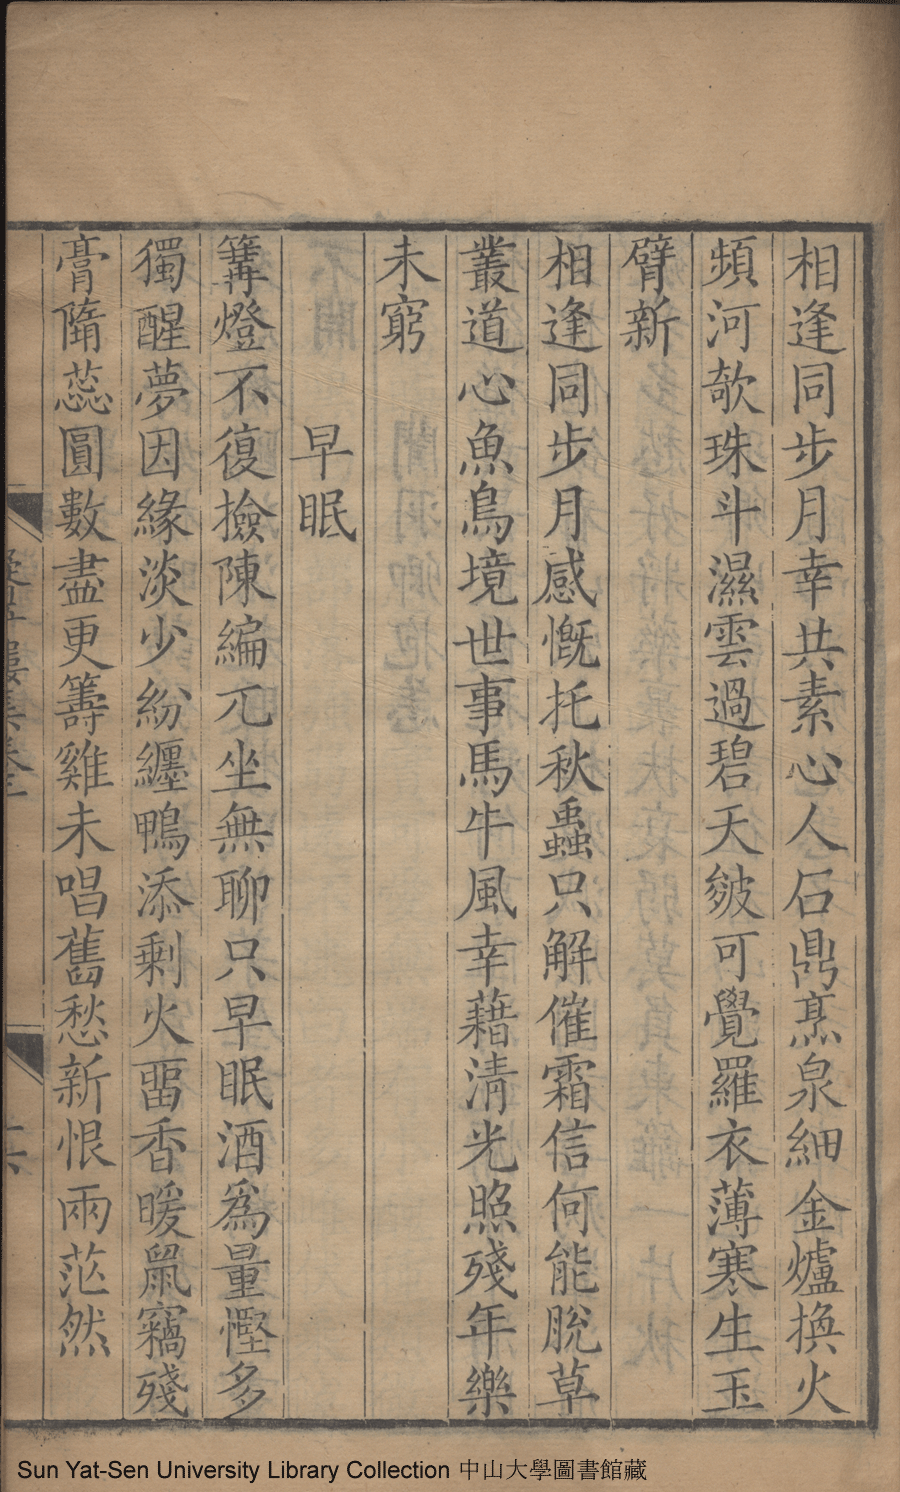 相逢同步月幸共素心人石鼎烹泉細金爐換火
頻河欹珠斗濕雲過碧天皴可覺羅衣薄寒生玉
臂新
相逢同步月感慨托秋蟲只解催霜信何能脫草
叢道心魚鳥境世事馬牛風幸藉清光照殘年樂
未窮
早眠
篝燈不復撿陳編兀坐無聊只早眠酒爲量慳多
獨醒夢因緣淡少紛纏鴨添剩火畱香暖鼠竊殘
膏隋蕊圓數盡更籌雞未唱舊愁新恨兩茫然
Sun Yat-Sen University Library Collection 中山大學圖書館藏